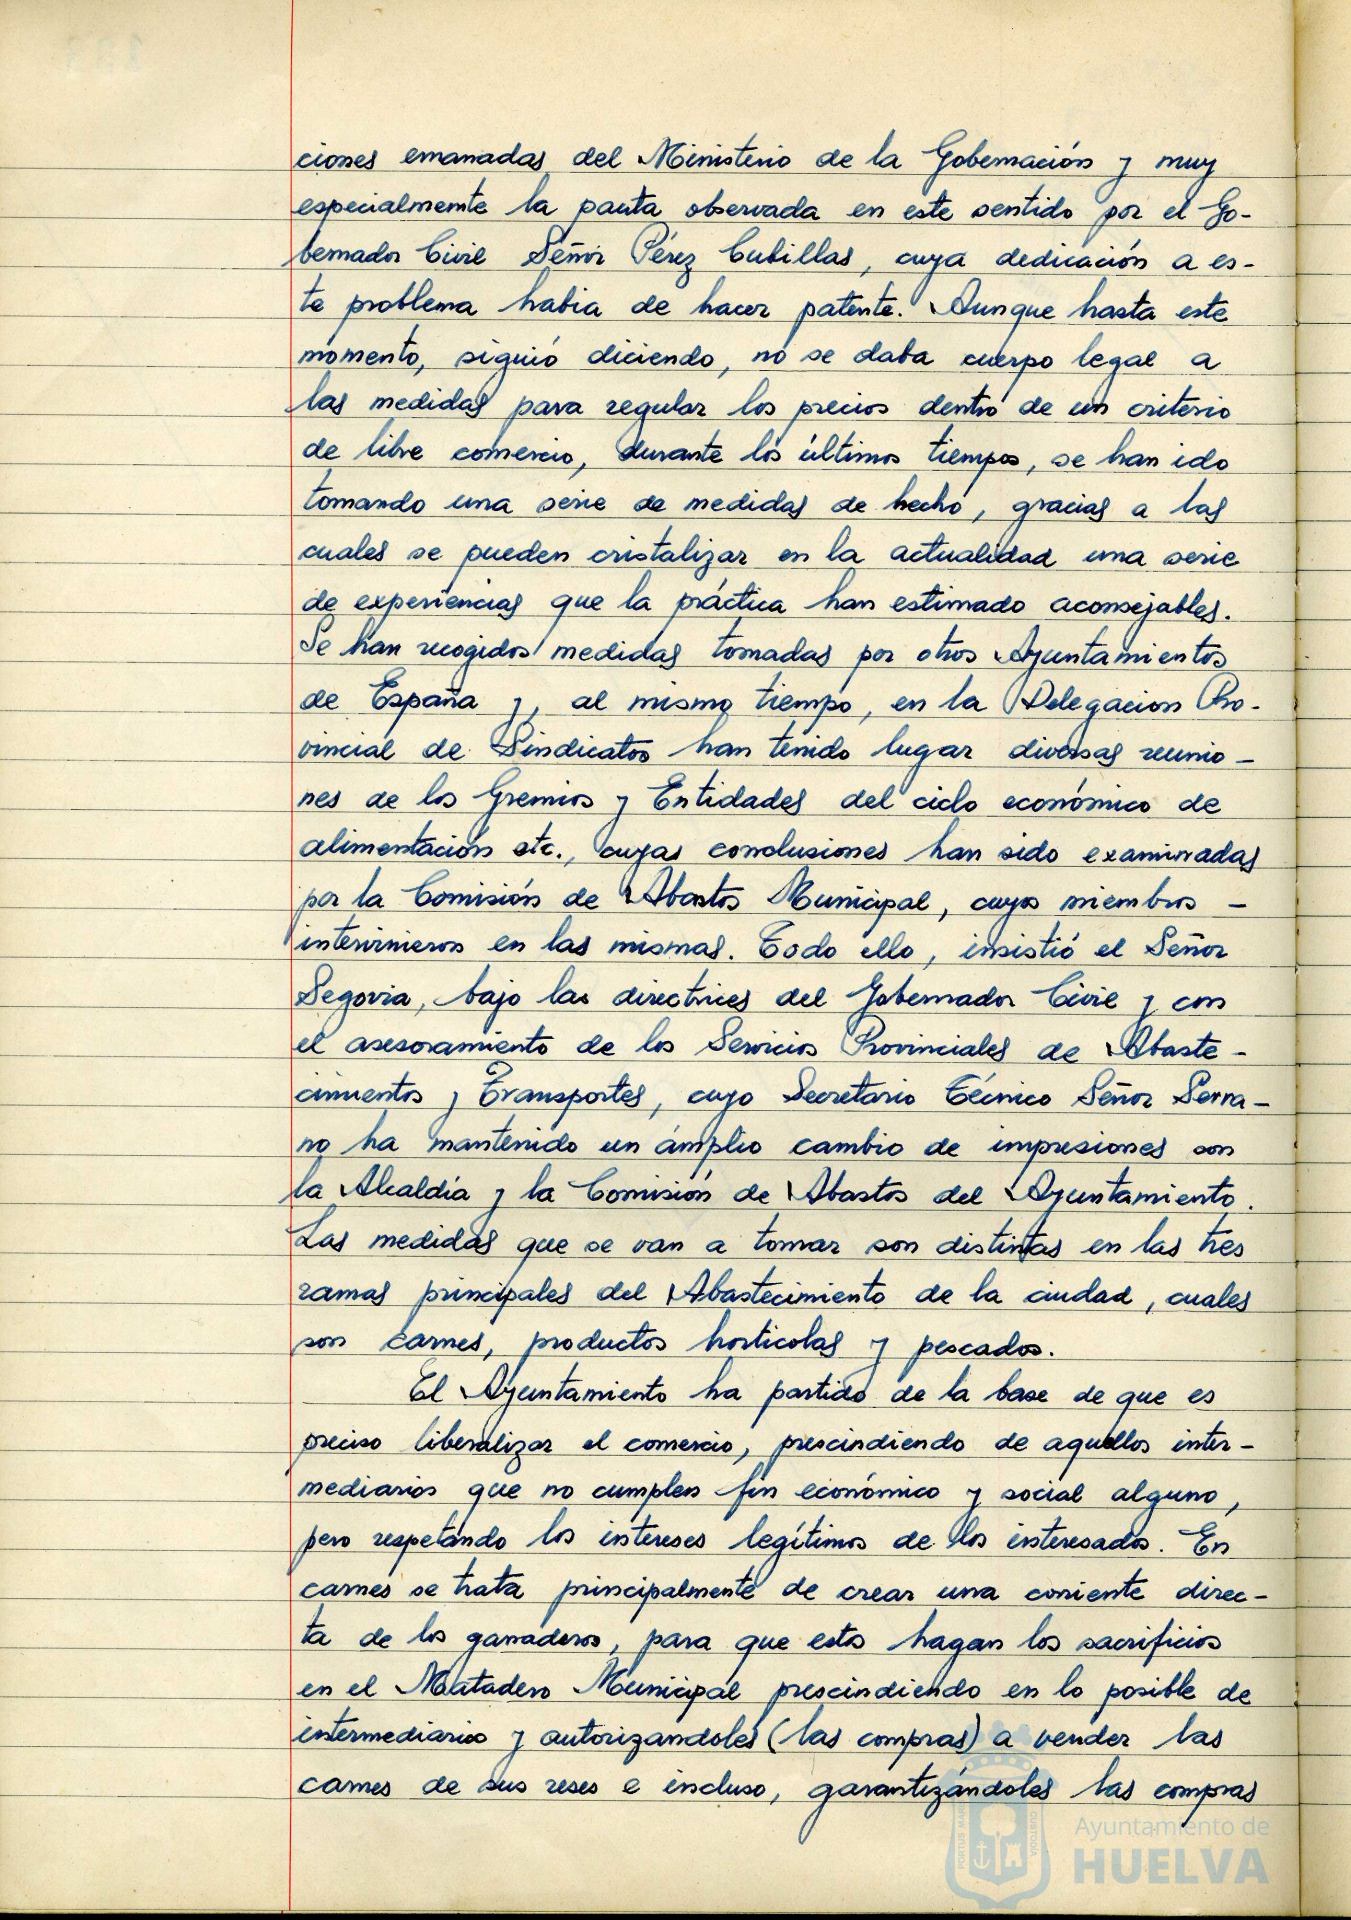 ciones emanadas del Ministerio de la Gobernación y muy
especialmente la pauta observada en este sentido por el Go-
bernador Civil Señor Pérez Cubillas, cuya dedicación a es-
te problema habia de hacer patente. Aunque hasta este
momento, siguió diciendo, no se daba cuerpo legal a
las medidas para regular los precios dentro de un criterio
de libre comercio, durante los últimos tiempos, se han ido
tomando una serie de medidas de hecho, gracias a las
cuales se pueden cristalizar en la actualidad una serie
de experiencias que la práctica han estimado aconsejables.
Se han recogidos medidas tomadas por otros Ayuntamientos
de España y, al mismo tiempo, en la Delegacion Pro-
vincial de Sindicatos han tenido lugar diversas reunio-
nes de los Gremios y Entidades del ciclo económico de
alimentación etc., cuyas conclusiones han sido examinadas
por la Comisión de Abastos Municipal, cuyos miembros -
intervinieron en las mismas. Todo ello, insistió el Señor
Segovia, bajo las directrices del Gobernador Civil y con
el asesoramiento de los Servicios Provinciales de Abaste-
cimientos y Transportes, cuyo Secretario Técnico Señor Serra-
no ha mantenido un ámplio cambio de impresiones con
la Alcaldía y la Comisión de Abastos del Ayuntamiento.
Las medidas que se van a tomar son distintas en las tres
ramas principales del Abastecimiento de la ciudad, cuales
son carnes, productos horticolas y pescados.
El Ayuntamiento ha partido de la base de que es
preciso liberalizar el comercio, prescindiendo de aquellos inter-
mediarios que no cumplen fin económico y social alguno,
pero respetando los intereses legítimos de los interesados. En
carnes se trata principalmente de crear una corriente direc-
ta de los ganaderos, para que estos hagan los sacrificios
en el Matadero Municipal prescindiendo en lo posible de
intermediarios y autorizandoles (las compras) a vender las
carnes de sus reses e incluso, garantizándoles las compras
Ayuntamiento de
HUELVA
PORTUS MARIS
CUSTODIA